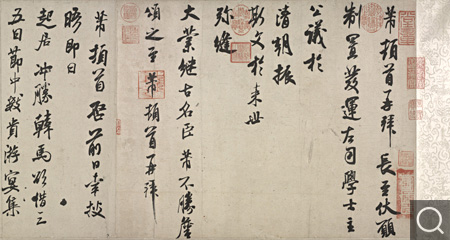 芾頓首再拜長至伏願
制置發運左司學士主
公議於
清朝振
斯文於来世
弥縫
大業繼古名臣芾不勝詹
頌之至芾頓首再拜
芾頓首啓前日幸披
晤即日
起居冲勝韓馬欲借三
五日節中數貴游宴集